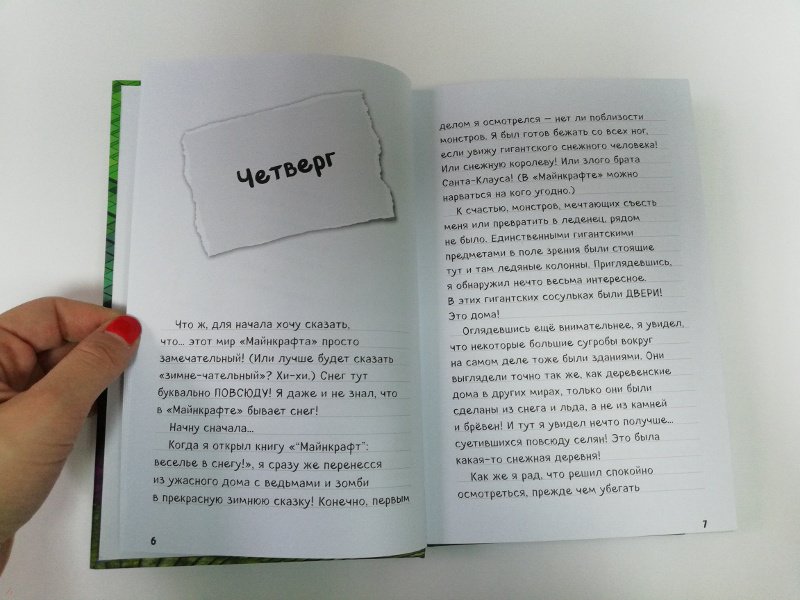 Четверг
Что ж, для начала хочу сказать,
что... этот мир «Майнкрафта» просто
замечательный! (Или лучше будет сказать
«зимне-чательный»? Хи-хи.) Снег тут
буквально ПОВСЮДУ! Я даже и не знал, что
в «Майнкрафте» бывает снег!
Начну сначала...
Когда я открыл книгу «"Майнкрафт":
веселье в снегу!», я сразу же перенесся
из ужасного дома с ведьмами и зомби
в прекрасную зимнюю сказку! Конечно, первым
6
делом я осмотрелся — нет ли поблизости
монстров. Я был готов бежать со всех ног,
если увижу гигантского снежного человека!
Или снежную королеву! Или злого брата
Санта-Клауса! (В «Майнкрафте» можно
нарваться на кого угодно.)
К счастью, монстров, мечтающих съесть
меня или превратить в леденец, рядом
не было. Единственными гигантскими
предметами в поле зрения были стоящие
тут и там ледяные колонны. Приглядевшись,
я обнаружил нечто весьма интересное.
В этих гигантских сосульках были ДВЕРИ!
Это дома!
Оглядевшись ещё внимательнее, я увидел,
что некоторые большие сугробы вокруг
на самом деле тоже были зданиями. Они
выглядели точно так же, как деревенские
дома в других мирах, только они были
сделаны из снега и льда, а не из камней
и брёвен! И тут я увидел нечто получше...
суетившихся повсюду селян! Это была
какая-то снежная деревня!
Как же я рад, что решил спокойно
осмотреться, прежде чем убегать
7